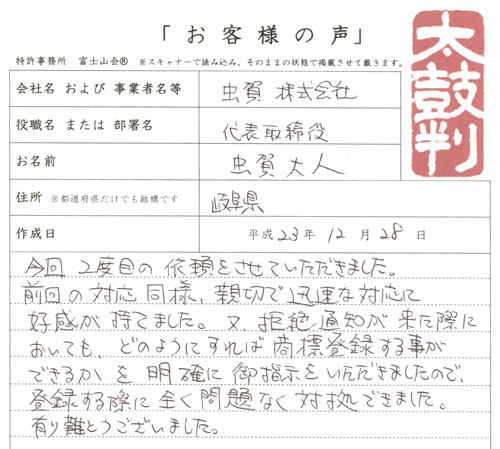 「お客様の声」
特許事務所 富士山会® ※スキャナーで読み込み、そのままの状態で掲載させて戴きます。
太鼓判
会社名 および 事業者名等 虫賀 株式会社
役職名 または 部署名 代表取締役
お名前 虫賀 大人
住所 ※都道府県だけでも結構です 岐阜県
作成日 平成 23 年 12 月 28 日
今回 2度目の 依頼をさせていただきました。
前回の対応同様、親切で迅速な対応に
好感が持てました。又、拒絶通知が来た際に
おいても、どのようにすれば商標登録する事が
できるか を 明確に御指示をいただきましたので、
登録する際に全く問題なく対処できました。
有り難とうございました。